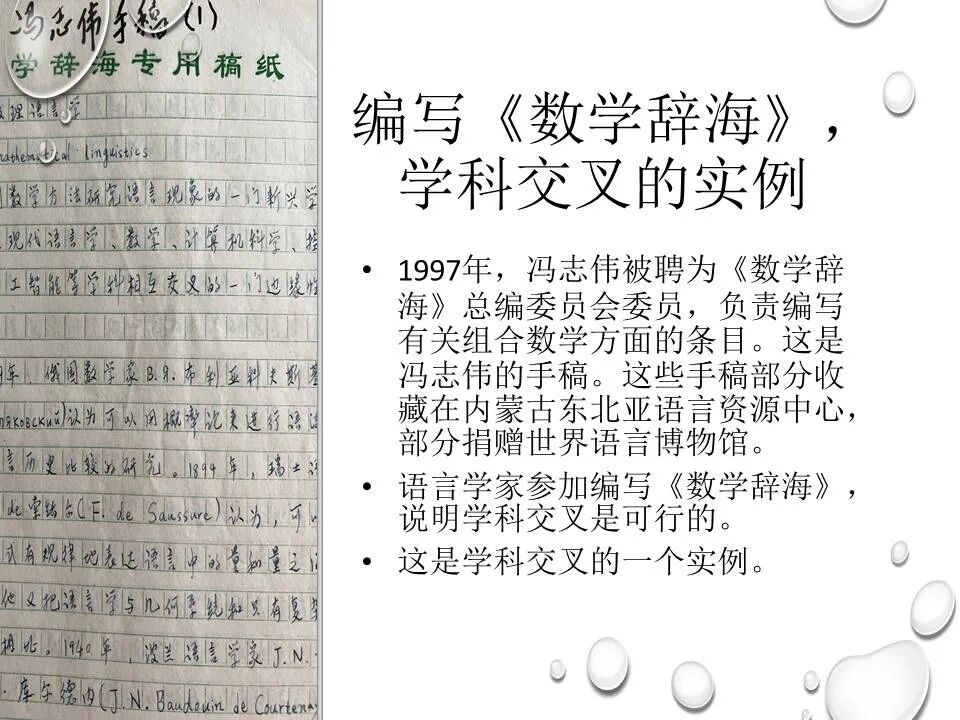 冯志伟手稿(1)
学辞海专用稿纸
理语言学
mathematical linguistics
数学方法研究语言现象的一门新兴学
现代语言学、数学、计算机科学、控
工智能等学科相互交叉的一门边缘性
年,俄国数学家B.Я.布利亚科夫斯基
няковский)认为可以用概率论来进行语
言历史比较的研究。1894年,瑞士语
de索绪尔(F. de Saussure)认为,可
式有规律地表达语言中的量和量之
他又把语言学与几何系统和具有复
相比。1940年,波兰语言学家J.N.
·库尔德内(J.N. Baudouin de Courtenay
编写《数学辞海》,
学科交叉的实例
• 1997年,冯志伟被聘为《数学辞
海》总编委员会委员,负责编写
有关组合数学方面的条目。这是
冯志伟的手稿。这些手稿部分收
藏在内蒙古东北亚语言资源中心,
部分捐赠世界语言博物馆。
• 语言学家参加编写《数学辞海》,
说明学科交叉是可行的。
• 这是学科交叉的一个实例。